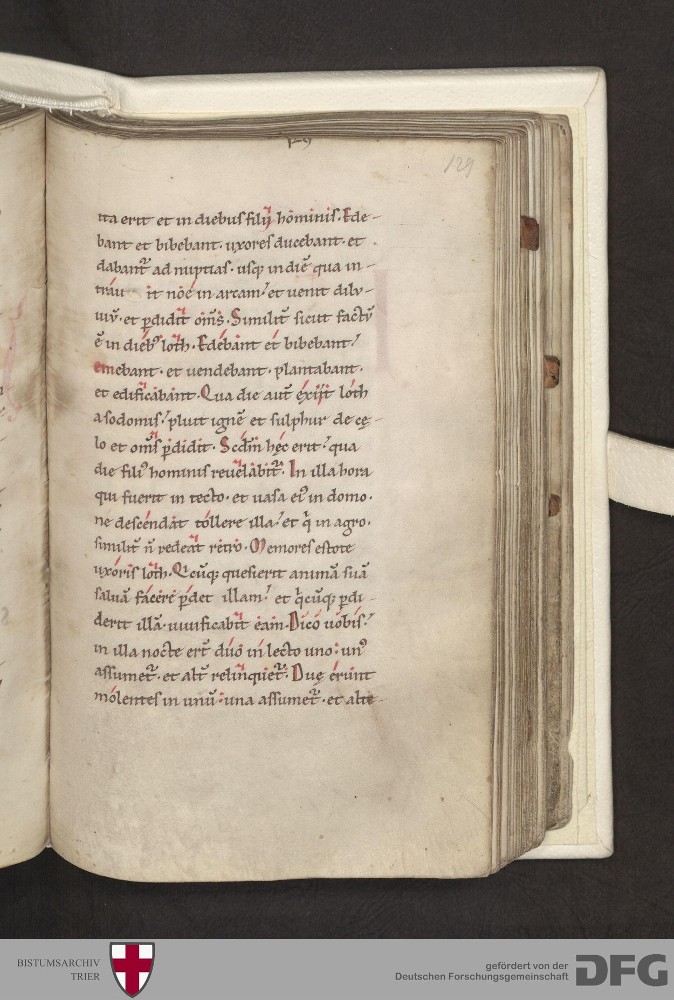 129
ita erit et in diebus filii hominis. Ede-
bant et bibebant. uxores ducebant. et
dabant᷒ ad nuptias. usq; in diē qua in-
trau it nóe in arcam. et uenit dilu-
uiū. et ꝑdidit om̄s. Similit̄ sicut factū
ē in dieb᷒ loth. Edebant et bibebant.
emebant. et uendebant. plantabant.
et edificabant. Qua die aut̄ exiit loth
a sodomis. pluit ignē et sulphur de cę-
lo et om̄s ꝑdidit. Scđm hęc erit. qua
die fili᷒ hominis reuelabit᷒. In illa hora
qui fuerit in tecto. et uasa ei᷒ in domo.
ne descendat tollere illa. et q̇ in agro.
similit̄ n̄ redeat retro. Memores estote
uxoris loth. Q̇cūq; quesierit animā suā
saluā facere ꝑdet illam. et q̇cūq; ꝑdi-
derit illā. uiuificabit eam. Dico uobis.
in illa nocte ert̄ duo in lecto uno: un᷒
assumet᷒. et alt̄ relinquiet᷒. Duę erunt
molentes in unū: una assumet᷒. et alte-
BISTUMSARCHIV
TRIER
gefördert von der
Deutschen Forschungsgemeinschaft
DFG